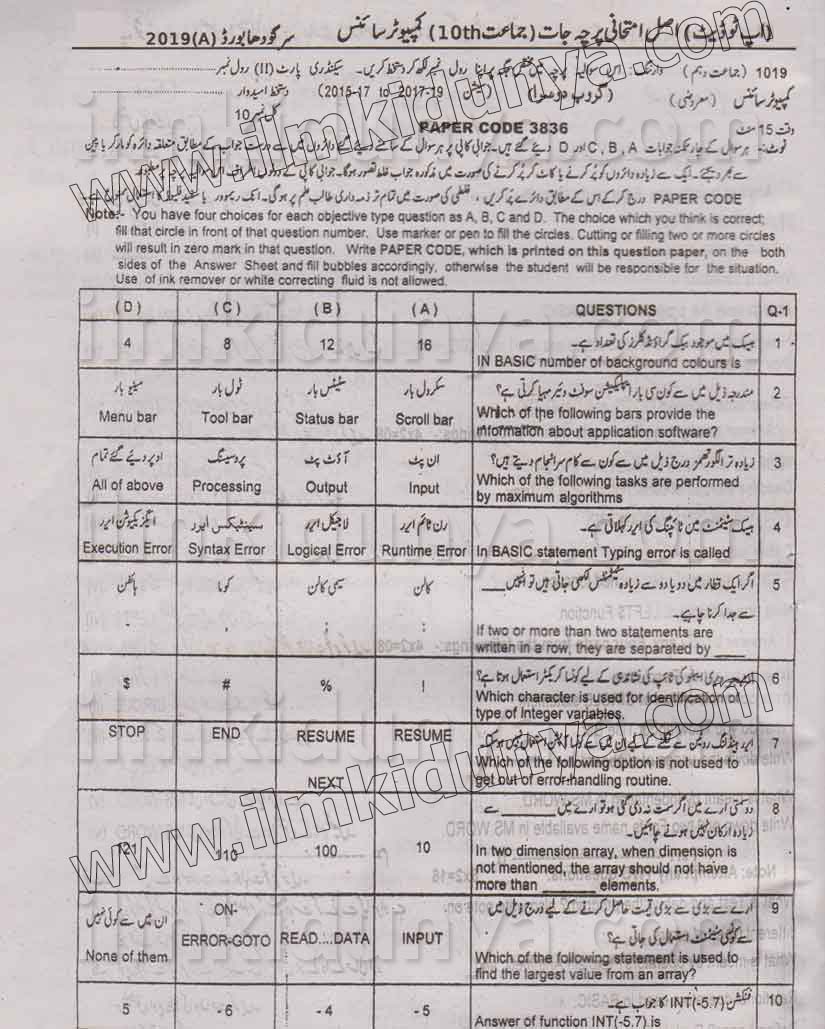 (اپ ٹو ڈیٹ) اصل امتحانی پرچہ جات (جماعت 10th) کمپیوٹر سائنس سرگودھا بورڈ 2019(A)
1019 (جماعت دہم) وارننگ:۔ اس سوالیہ پرچہ میں مختص جگہ پر اپنا رول نمبر لکھ کر دستخط کریں۔ سیکنڈری پارٹ (II) رول نمبر
کمپیوٹر سائنس (معروضی) (گروپ دوسرا) (سیشن 2015-17 to 2017-19) دستخط امیدوار
وقت 15 منٹ PAPER CODE 3836 کل نمبر 10
نوٹ:۔ ہر سوال کے چار ممکنہ جوابات A, B, C اور D دیئے گئے ہیں۔ جوابی کاپی پر ہر سوال کے سامنے دیئے گئے دائروں میں سے درست جواب کے مطابق متعلقہ دائرہ کو مارکر یا پین
سے بھر دیجئے۔ ایک سے زیادہ دائروں کو پُر کرنے یا کاٹ کر پُر کرنے کی صورت میں مذکورہ جواب غلط تصور ہوگا۔ جوابی کاپی کے دونوں اطراف اس سوالیہ پرچہ پر مطبوعہ
PAPER CODE درج کر کے اس کے مطابق دائرے پُر کریں، غلطی کی صورت میں تمام تر ذمہ داری طالب علم پر ہوگی۔ انک ریموور یا سفید فلیوڈ کا استعمال ممنوع ہے۔
Note:- You have four choices for each objective type question as A, B, C and D. The choice which you think is correct;
fill that circle in front of that question number. Use marker or pen to fill the circles. Cutting or filling two or more circles
will result in zero mark in that question. Write PAPER CODE, which is printed on this question paper, on the both
sides of the Answer Sheet and fill bubbles accordingly, otherwise the student will be responsible for the situation.
Use of ink remover or white correcting fluid is not allowed.
(D) (C) (B) (A) QUESTIONS Q-1
بیسک میں موجود بیک گراؤنڈ کلرز کی تعداد ہے۔ 1
4 8 12 16
IN BASIC number of background colours is
مینیو بار ٹول بار سٹیٹس بار سکرول بار مندرجہ ذیل میں سے کون سی بار ایپلیکیشن سوفٹ ویئر مہیا کرتی ہے؟ 2
Menu bar Tool bar Status bar Scroll bar Which of the following bars provide the
information about application software?
اوپر دیئے گئے تمام پروسیسنگ آؤٹ پٹ ان پٹ زیادہ تر الگورتھمز درج ذیل میں سے کون سے کام سرانجام دیتے ہیں؟ 3
All of above Processing Output Input Which of the following tasks are performed
by maximum algorithms
ایگزیکیوشن ایرر سینٹیکس ایرر لاجیکل ایرر رن ٹائم ایرر بیسک سٹیٹمنٹ میں ٹائپنگ کی ایرر کہلاتی ہے۔ 4
Execution Error Syntax Error Logical Error Runtime Error In BASIC statement Typing error is called
ہائفن کوما سیمی کالن کالن اگر ایک قطار میں دو یا دو سے زیادہ سٹیٹمنٹس لکھی جاتی ہیں تو انہیں ____ 5
سے جدا کرنا چاہیے۔
- , ; : If two or more than two statements are
written in a row, they are separated by ____
کونسا کریکٹر استعمال ہوتا ہے؟ 6
$ # % !
Which character is used for identification of
type of Integer variables.
STOP END RESUME NEXT RESUME 7
Which of the following option is not used to
get out of error-handling routine.
دو سمتی ارے میں اگر سمت نہ دی گئی ہو تو ارے میں ____ سے 8
زیادہ ارکان نہیں ہونے چاہئیں۔
121 110 100 10 In two dimension array, when dimension is
not mentioned, the array should not have
more than ______ elements.
ان میں سے کوئی نہیں ارے سے بڑی سے بڑی قیمت حاصل کرنے کے لیے درج ذیل میں 9
سے کونسی سٹیٹمنٹ استعمال کی جاتی ہے؟
None of them ON-ERROR-GOTO READ....DATA INPUT Which of the following statement is used to
find the largest value from an array?
فنکشن INT(-5.7) کا جواب ہے۔ 10
5 - 6 - 4 - 5 Answer of function INT(-5.7) is
www.ilmkidunya.com
www.ilmkidunya.com
ilmkidunya.com